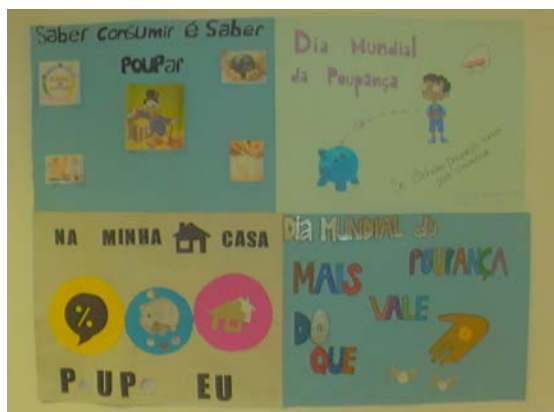 Saber Consumir é Saber
POUPar
Dia Mundial
da Poupança
Se
NA MINHA CASA
%
POUPO EU
DIA MUNDIAL da
POUPANÇA
MAIS
VALE
DO
QUE